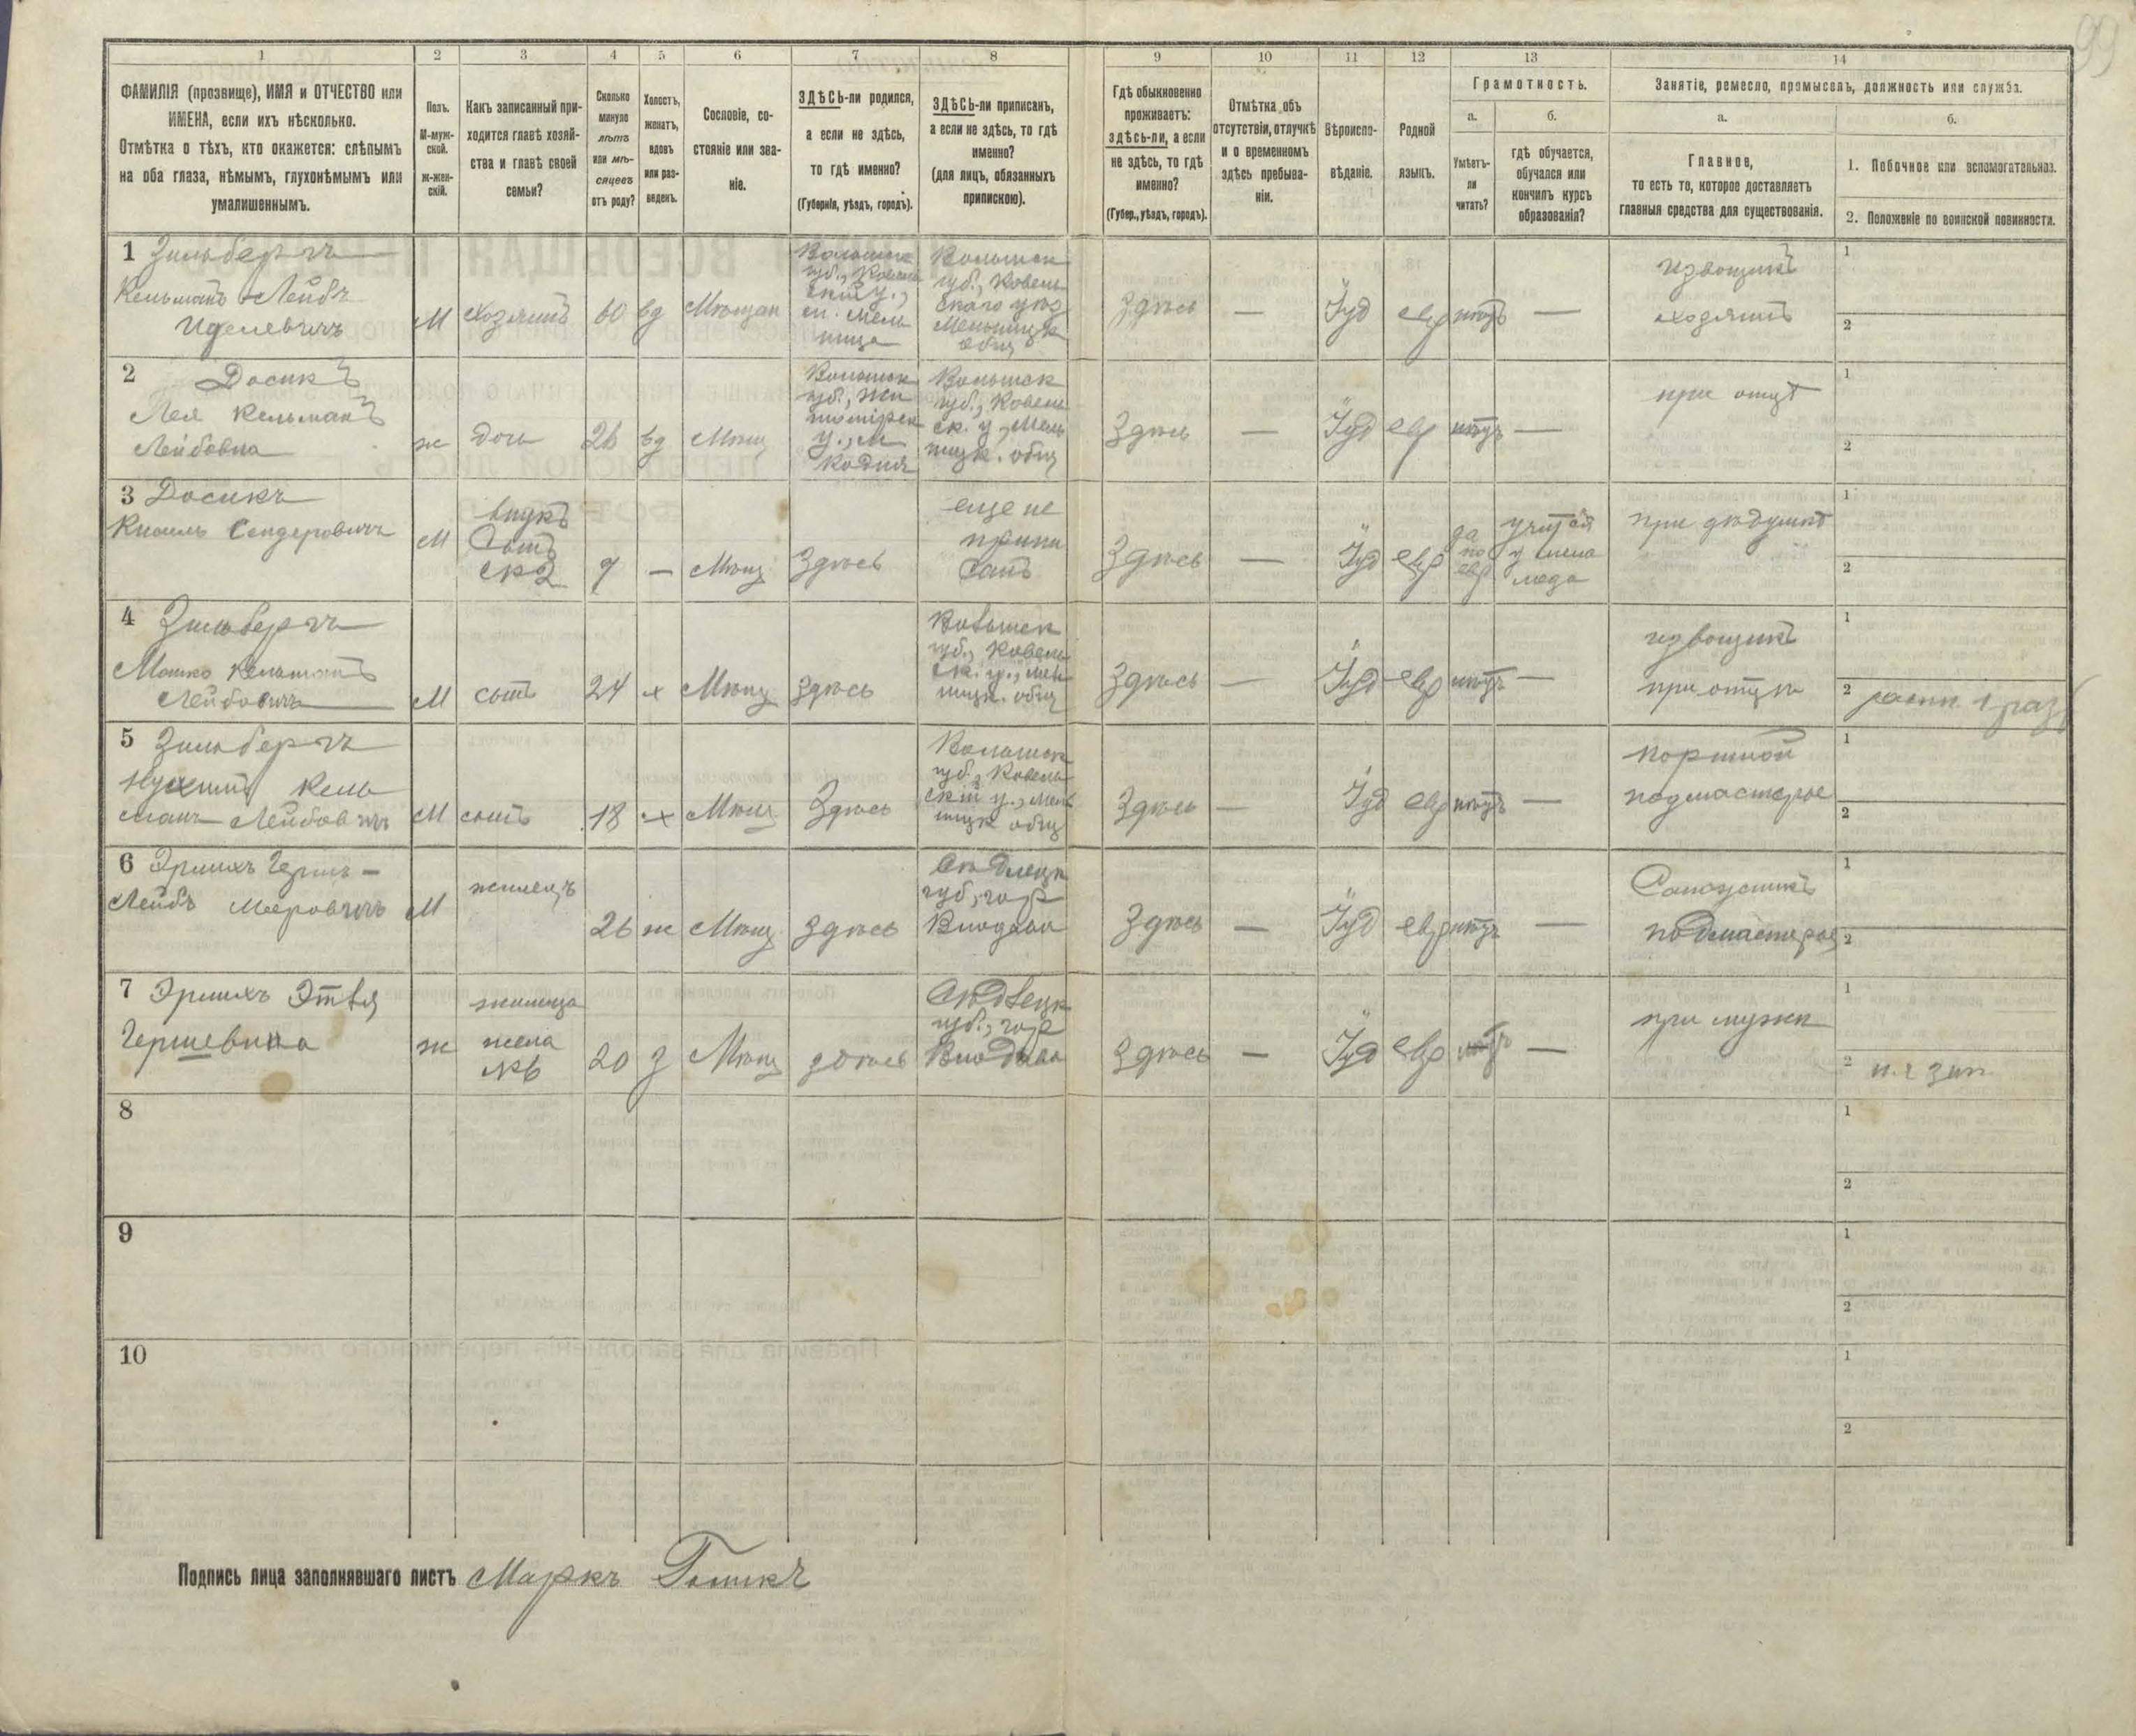 99
1 2 3 4 5 6 7 8 9 10 11 12 13 14
ФАМИЛІЯ (прозвище), ИМЯ и ОТЧЕСТВО или
ИМЕНА, если ихъ нѣсколько.
Отмѣтка о тѣхъ, кто окажется: слѣпымъ
на оба глаза, нѣмымъ, глухонѣмымъ или
умалишеннымъ.
Полъ.
М-муж-
ской.
Ж-жен-
скій.
Какъ записанный при-
ходится главѣ хозяй-
ства и главѣ своей
семьи?
Сколько
минуло
лѣтъ
или мѣ-
сяцевъ
отъ роду?
Холостъ,
женатъ,
вдовъ
или раз-
веденъ.
Сословіе, со-
стояніе или зва-
ніе.
ЗДѢСЬ-ли родился,
а если не здѣсь,
то гдѣ именно?
(Губернія, уѣздъ, городъ).
ЗДѢСЬ-ли приписанъ,
а если не здѣсь, то гдѣ
именно?
(для лицъ, обязанныхъ
припискою).
Гдѣ обыкновенно
проживаетъ:
здѣсь-ли, а если
не здѣсь, то гдѣ
именно?
(Губер., уѣздъ, городъ).
Отмѣтка объ
отсутствіи, отлучкѣ
и о временномъ
здѣсь пребыва-
ніи.
Вѣроиспо-
вѣданіе.
Родной
языкъ.
Грамотность.
а.
Умѣетъ-
ли
читать?
б.
гдѣ обучается,
обучался или
кончилъ курсъ
образованія?
Занятіе, ремесло, промыселъ, должность или служба.
а.
Главное,
то есть то, которое доставляетъ
главныя средства для существованія.
б.
1. Побочное или вспомогательное.
2. Положеніе по воинской повинности.
1 Зильбергъ
Кельманъ Лейбъ
Иделевичъ
М
Хозяинъ
60
вд
Мѣщан
Волынск
губ., Ковель
скій у.,
м. Мель
ница
Волынск
губ., Ковель
скаго уѣз
Мельницк
общ
Здѣсь
—
Іуд
евр
нѣтъ
—
извощикъ
хозяинъ
1
2
2 Досикъ
Лея Кельманъ
Лейбовна
ж
дочь
26
вд
Мѣщ
Волынск
губ., Жи
томірск
у., м
Кодня
Волынск
губ., Ковель
ск. у., Мель
ницк. общ
Здѣсь
—
Іуд
евр
нѣтъ
—
при отцѣ
1
2
3 Досикъ
Кисиль Сендеровичъ
М
внукъ
Сынъ
№2
7
—
Мѣщ
Здѣсь
еще не
припи
санъ
Здѣсь
—
Іуд
евр
да
по
евр
учится
у мела
меда
при дѣдушкѣ
1
2
4 Зильбергъ
Мошко Кельманъ
Лейбовичъ
М
сынъ
24
х
Мѣщ
Здѣсь
Волынск
губ., Ковель
ск. у., Мель
ницк. общ
Здѣсь
—
Іуд
евр
нѣтъ
—
извощикъ
при отцѣ
1
2 ратн. 1 раз
5 Зильбергъ
Нухимъ Кель
манъ Лейбовичъ
М
сынъ
18
х
Мѣщ
Здѣсь
Волынск
губ., Ковель
скій у., Мель
ницк общ
Здѣсь
—
Іуд
евр
нѣтъ
—
портной
подмастерье
1
2
6 Эрлихъ Герш-
Лейбъ Мееровичъ
М
жилецъ
26
ж
Мѣщ
Здѣсь
Сѣдлецк
губ., гор
Влодава
Здѣсь
—
Іуд
евр
нѣтъ
—
Сапожникъ
подмастерье
1
2
7 Эрлихъ Этля
Гершевна
ж
жилица
жена
№6
20
з
Мѣщ
здѣсь
Сѣдлецк
губ., гор
Влодава
Здѣсь
—
Іуд
евр
нѣтъ
—
при мужѣ
1
2
8
1
2
9
1
2
10
1
2
Подпись лица заполнявшаго листъ Маркъ